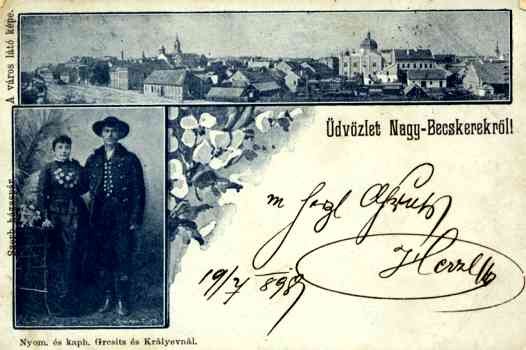 A város látó képes
Üdvözlet Nagy-Becskerekről!
Szerb házaspár
m herzl
Herzl
19/7 898
Nyom. és kaph. Grcsits és Krályevnál.